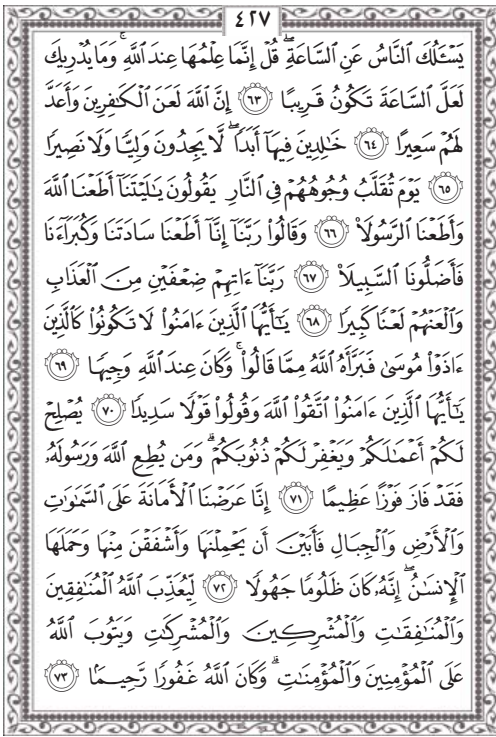 ٤٢٧
يَسْـَٔلُكَ ٱلنَّاسُ عَنِ ٱلسَّاعَةِۖ قُلْ إِنَّمَا عِلْمُهَا عِندَ ٱللَّهِۚ وَمَا يُدْرِيكَ
لَعَلَّ ٱلسَّاعَةَ تَكُونُ قَرِيبًا ٦٣ إِنَّ ٱللَّهَ لَعَنَ ٱلْكَٰفِرِينَ وَأَعَدَّ
لَهُمْ سَعِيرًا ٦٤ خَٰلِدِينَ فِيهَآ أَبَدًاۖ لَّا يَجِدُونَ وَلِيًّا وَلَا نَصِيرًا
٦٥ يَوْمَ تُقَلَّبُ وُجُوهُهُمْ فِى ٱلنَّارِ يَقُولُونَ يَٰلَيْتَنَآ أَطَعْنَا ٱللَّهَ
وَأَطَعْنَا ٱلرَّسُولَا۠ ٦٦ وَقَالُوا۟ رَبَّنَآ إِنَّآ أَطَعْنَا سَادَتَنَا وَكُبَرَآءَنَا
فَأَضَلُّونَا ٱلسَّبِيلَا۠ ٦٧ رَبَّنَآ ءَاتِهِمْ ضِعْفَيْنِ مِنَ ٱلْعَذَابِ
وَٱلْعَنْهُمْ لَعْنًا كَبِيرًا ٦٨ يَٰٓأَيُّهَا ٱلَّذِينَ ءَامَنُوا۟ لَا تَكُونُوا۟ كَٱلَّذِينَ
ءَاذَوْا۟ مُوسَىٰ فَبَرَّأَهُ ٱللَّهُ مِمَّا قَالُوا۟ۚ وَكَانَ عِندَ ٱللَّهِ وَجِيهًا ٦٩
يَٰٓأَيُّهَا ٱلَّذِينَ ءَامَنُوا۟ ٱتَّقُوا۟ ٱللَّهَ وَقُولُوا۟ قَوْلًا سَدِيدًا ٧٠ يُصْلِحْ
لَكُمْ أَعْمَٰلَكُمْ وَيَغْفِرْ لَكُمْ ذُنُوبَكُمْۗ وَمَن يُطِعِ ٱللَّهَ وَرَسُولَهُۥ
فَقَدْ فَازَ فَوْزًا عَظِيمًا ٧١ إِنَّا عَرَضْنَا ٱلْأَمَانَةَ عَلَى ٱلسَّمَٰوَٰتِ
وَٱلْأَرْضِ وَٱلْجِبَالِ فَأَبَيْنَ أَن يَحْمِلْنَهَا وَأَشْفَقْنَ مِنْهَا وَحَمَلَهَا
ٱلْإِنسَٰنُۖ إِنَّهُۥ كَانَ ظَلُومًا جَهُولًا ٧٢ لِّيُعَذِّبَ ٱللَّهُ ٱلْمُنَٰفِقِينَ
وَٱلْمُنَٰفِقَٰتِ وَٱلْمُشْرِكِينَ وَٱلْمُشْرِكَٰتِ وَيَتُوبَ ٱللَّهُ
عَلَى ٱلْمُؤْمِنِينَ وَٱلْمُؤْمِنَٰتِۗ وَكَانَ ٱللَّهُ غَفُورًا رَّحِيمًۢا ٧٣